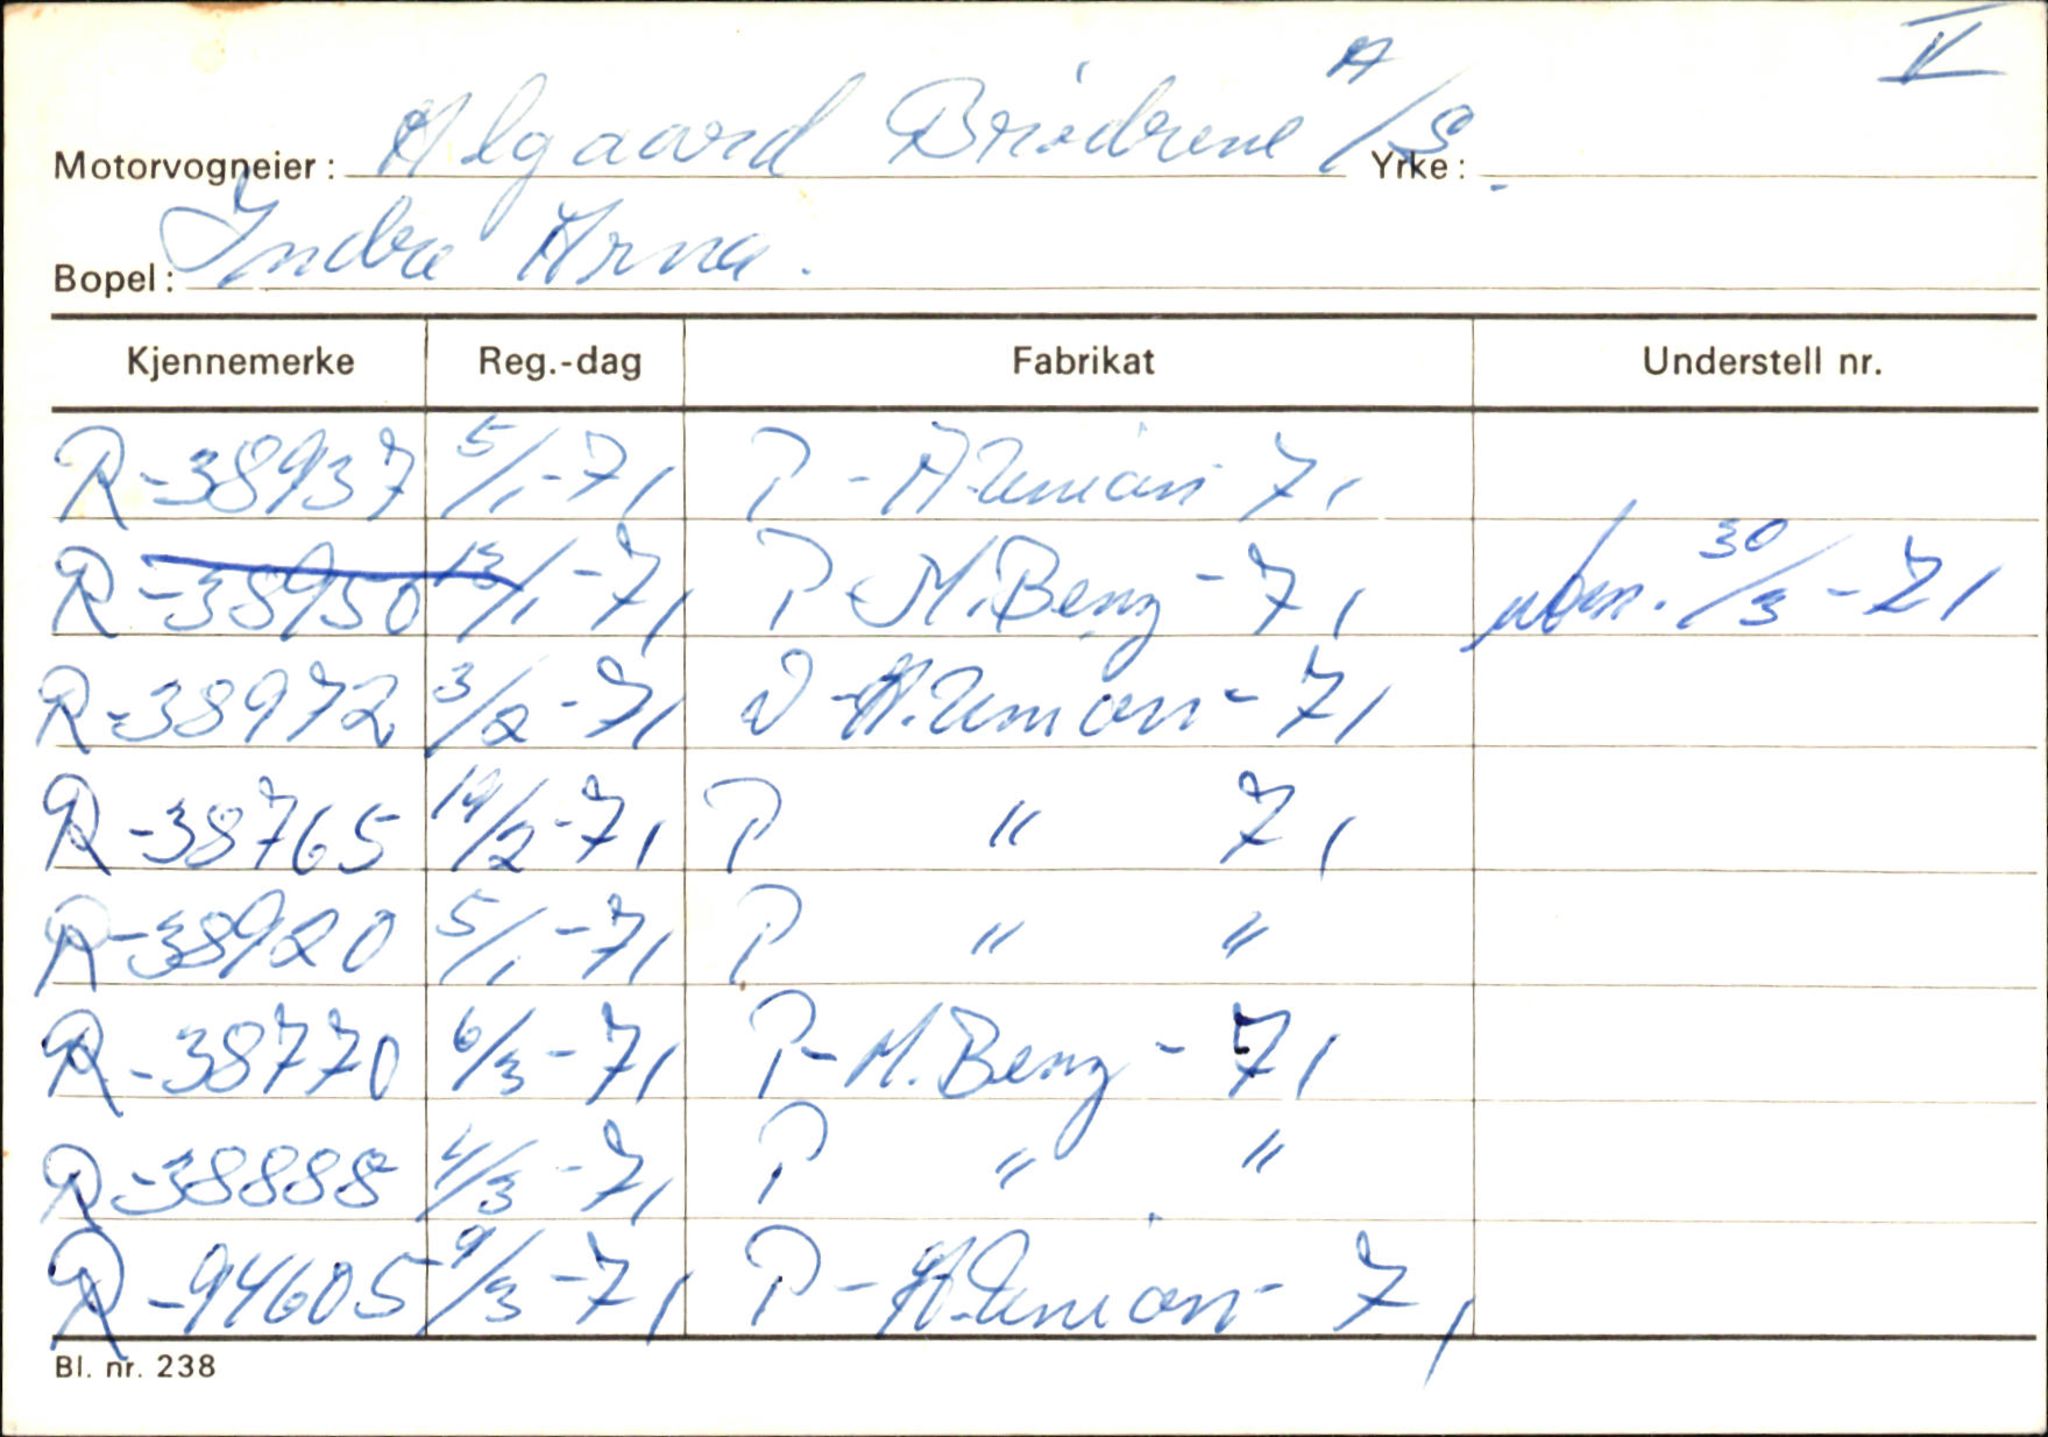 V
Motorvogneier: Algaard Brødrene A/S. Yrke:
Bopel: Indre Arna.
Kjennemerke Reg.-dag Fabrikat Understell nr.
R-38937 5/1-71 P - A.Union 71
R-38950 13/1-71 P-M.Benz - 71 30/3-71
R-38972 3/2-71 V-A.Union - 71
R-38765 19/2-71 P " 71
R-38920 5/1-71 P " "
R-38770 6/3-71 P-M.Benz - 71
R-38888 4/3-71 P " "
R-94605 9/3-71 P - A.Union - 71
Bl. nr. 238